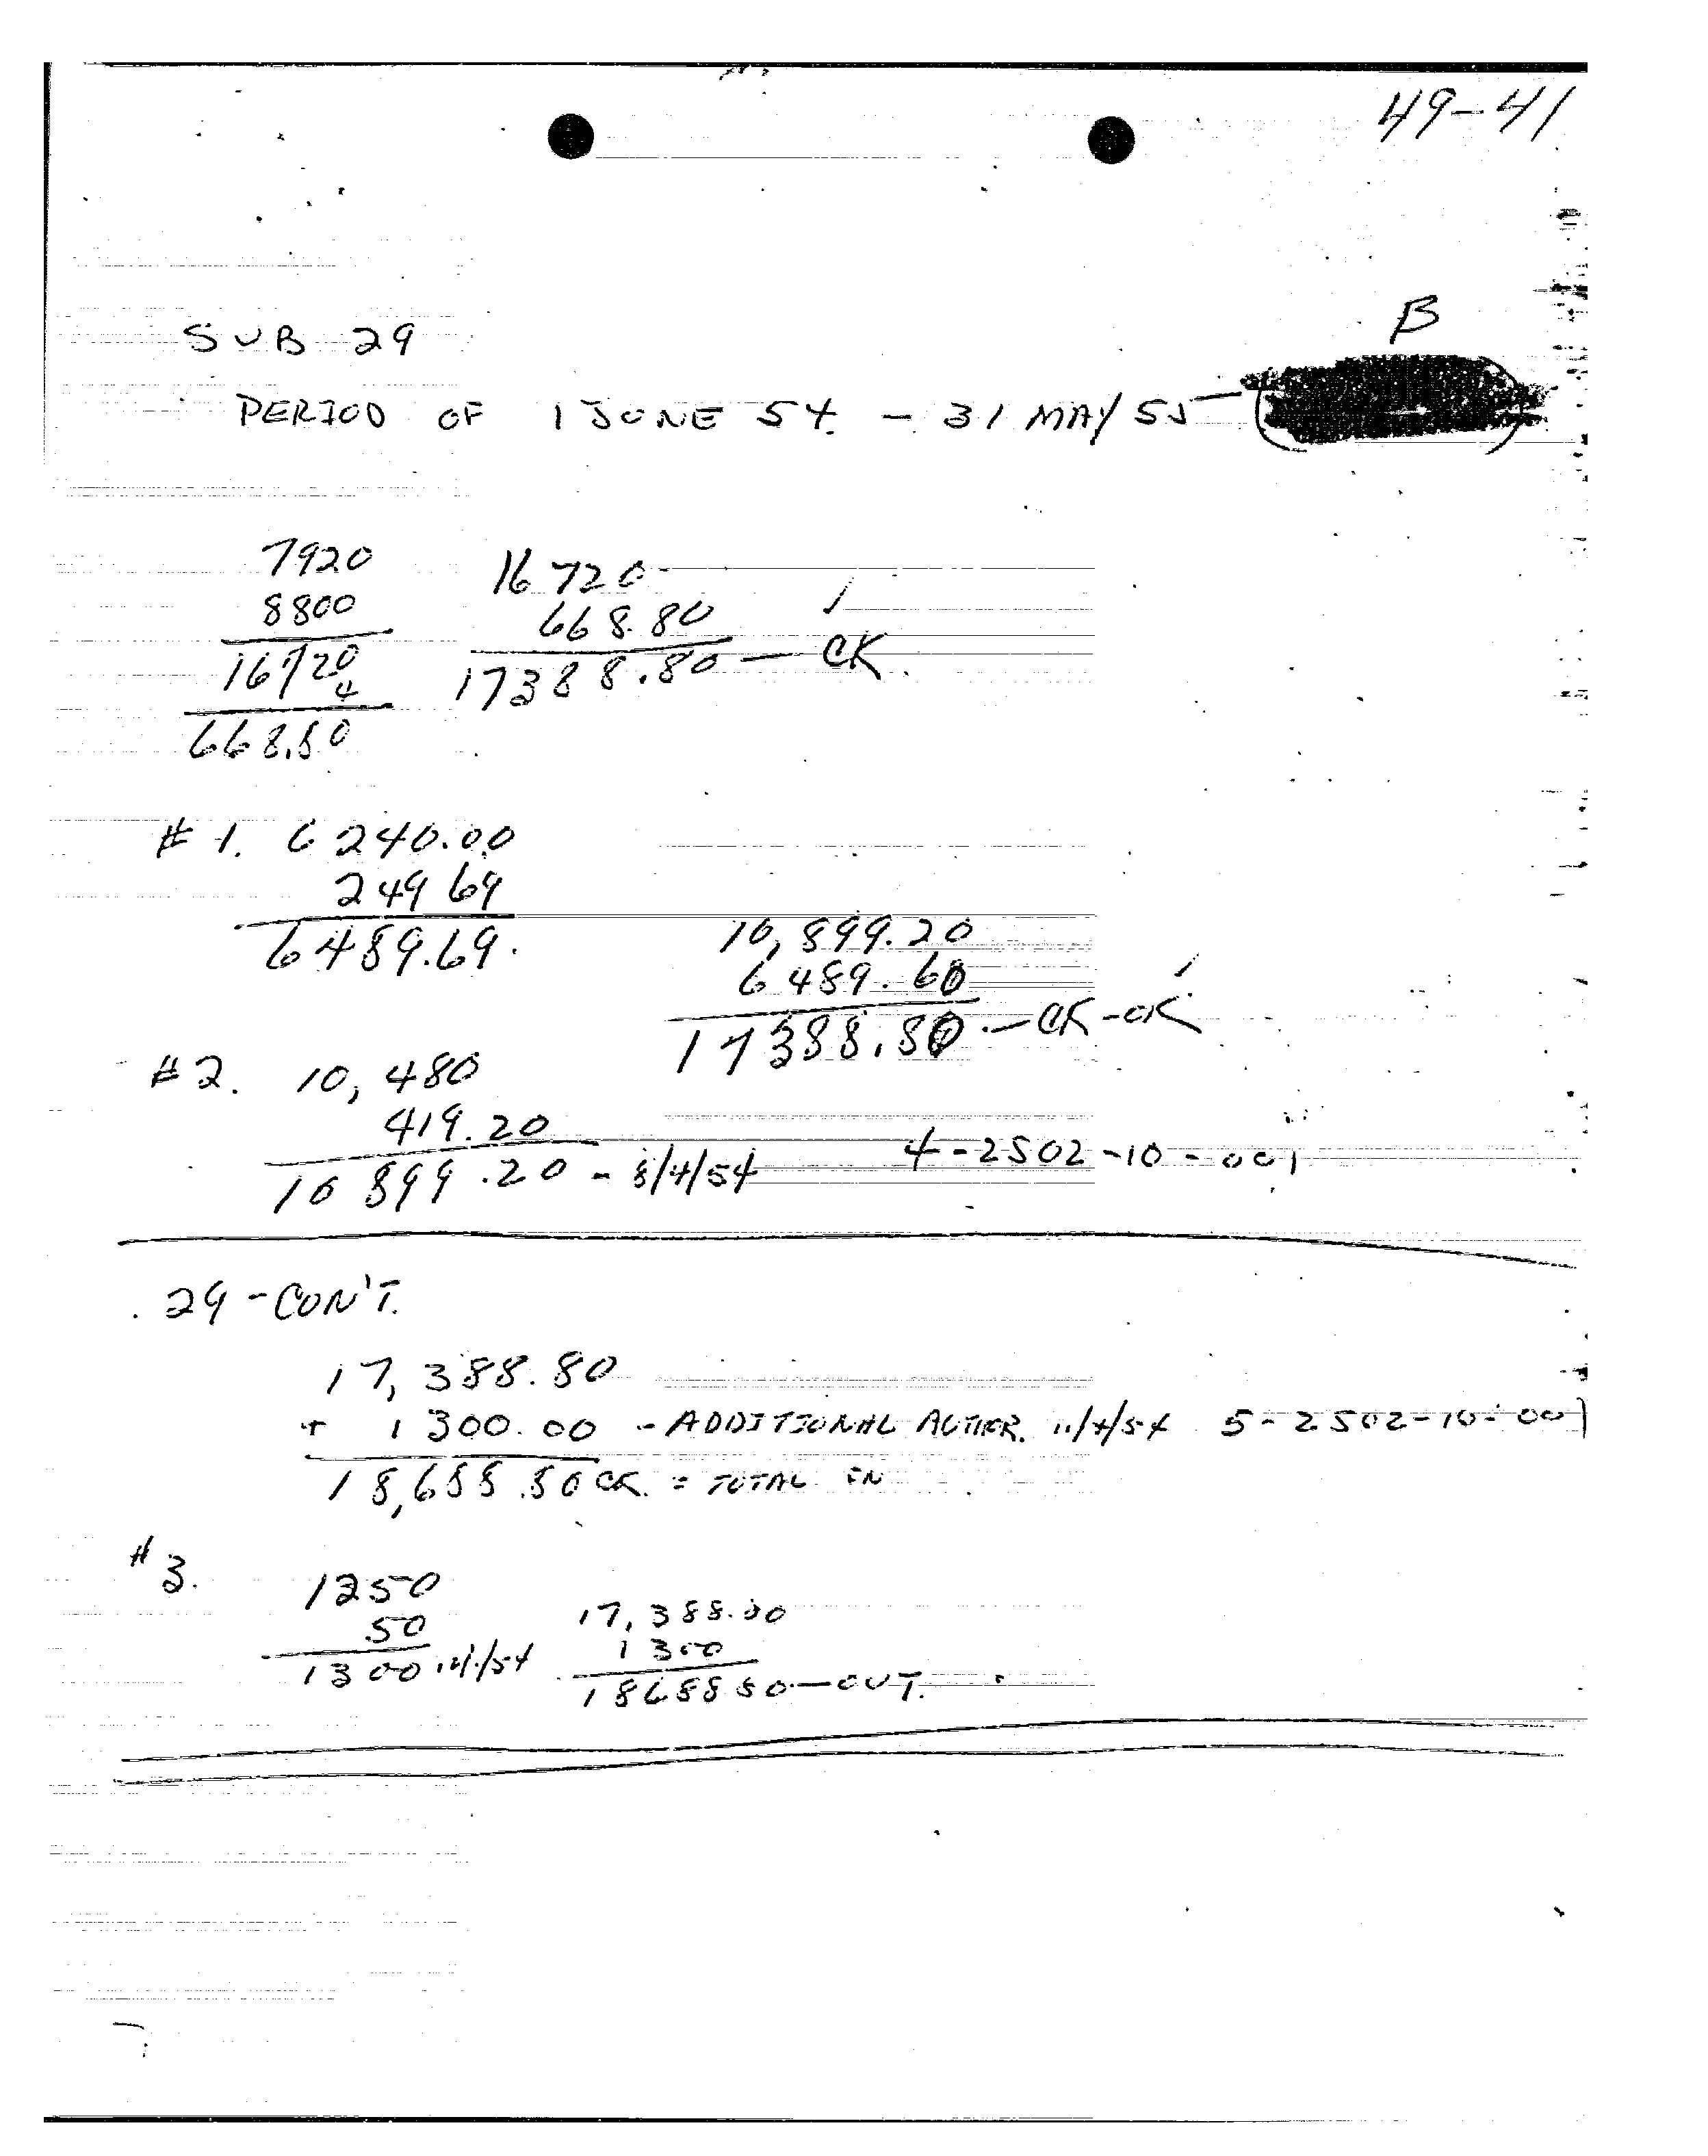 49-41
B
SUB 29
PERIOD OF 1 JUNE 54 - 31 MAY 55 -
7920
8800
16720
4
668.80
16 720
668.80
17388.80 - CK.
# 1. 6240.00
249 69
6489.69.
10,899.20
6489.60
17388.80 - CK-OK
# 2. 10,480
419.20
10 899.20 - 8/4/54
4-2502-10-001
29 - CON'T.
17,388.80
+ 1300.00 - ADDITIONAL AUTHER. 11/4/54 5-2502-10-001
18,688.80 CK. = TOTAL IN
# 3.
1250
50
1300
17,388.80
1300
18688 80 - OUT.